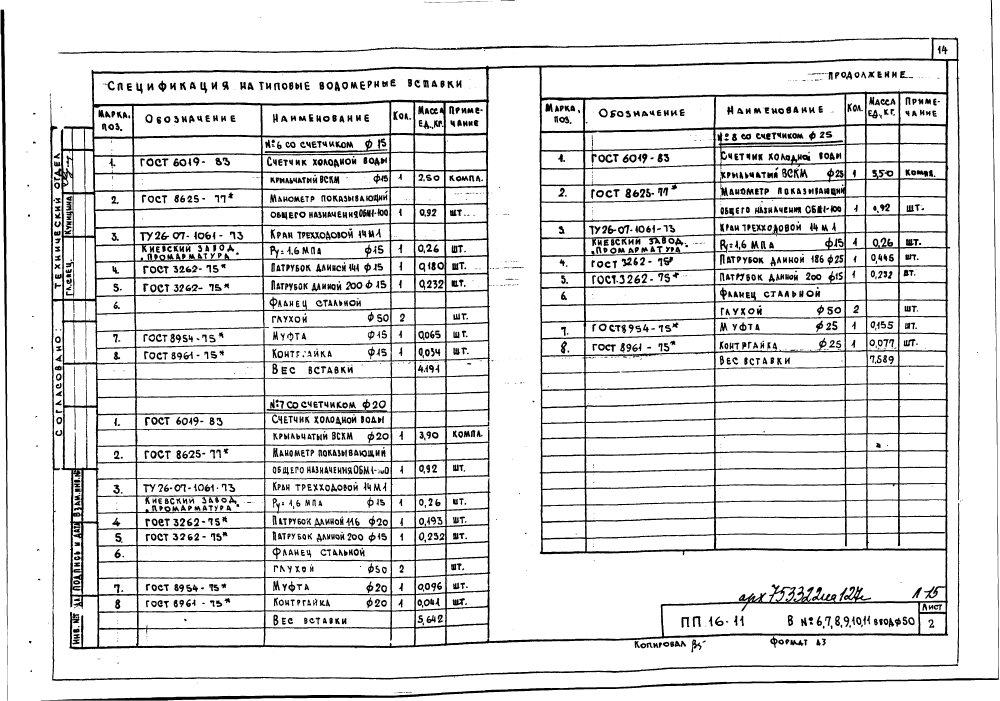 14
Спецификация на типовые водомерные вставки
Марка, поз. Обозначение Наименование Кол. Масса ед., кг. Примечание
№6 со счетчиком ф 15
1. ГОСТ 6019-83 Счетчик холодной воды
крыльчатый ВСКМ ф15 1 2.50 компл.
2. ГОСТ 8625-77* Манометр показывающий
общего назначения ОБМ1-100 1 0,92 шт.
3. ТУ26-07-1061-73 Кран трехходовой 14М1
Киевский завод „Промарматура" Ру=1,6 МПа ф15 1 0,26 шт.
4. ГОСТ 3262-75* Патрубок длиной 141 ф15 1 0,180 шт.
5. ГОСТ 3262-75* Патрубок длиной 200 ф15 1 0,232 шт.
6. Фланец стальной
глухой ф50 2 шт.
7. ГОСТ 8954-75* Муфта ф15 1 0,065 шт.
8. ГОСТ 8961-75* Контргайка ф15 1 0,034 шт.
Вес вставки 4.191
№7 со счетчиком ф20
1. ГОСТ 6019-83 Счетчик холодной воды
крыльчатый ВСКМ ф20 1 3,90 компл.
2. ГОСТ 8625-77* Манометр показывающий
общего назначения ОБМ1-100 1 0,92 шт.
3. ТУ26-07-1061-73 Кран трехходовой 14М1
Киевский завод „Промарматура" Ру=1,6 МПа ф15 1 0,26 шт.
4 ГОСТ 3262-75* Патрубок длиной 116 ф20 1 0,193 шт.
5. ГОСТ 3262-75* Патрубок длиной 200 ф15 1 0,232 шт.
6. Фланец стальной
глухой ф50 2 шт.
7. ГОСТ 8954-75* Муфта ф20 1 0,096 шт.
8 ГОСТ 8961-75* Контргайка ф20 1 0,041 шт.
Вес вставки 5,642
Продолжение
Марка, поз. Обозначение Наименование Кол. Масса ед., кг. Примечание
№8 со счетчиком ф25
1. ГОСТ 6019-83 Счетчик холодной воды
крыльчатый ВСКМ ф25 1 5,50 компл.
2. ГОСТ 8625-77* Манометр показывающий
общего назначения ОБМ1-100 1 0,92 шт.
3 ТУ26-07-1061-73 Кран трехходовой 14М1
Киевский завод „Промарматура" Ру=1,6 МПа ф15 1 0,26 шт.
4. ГОСТ 3262-75* Патрубок длиной 186 ф25 1 0,445 шт.
5. ГОСТ.3262-75* Патрубок длиной 200 ф15 1 0,232 шт.
6. Фланец стальной
глухой ф50 2 шт.
7. ГОСТ 8954-75* Муфта ф25 1 0,155 шт.
8. ГОСТ 8961-75* Контргайка ф25 1 0,077 шт.
Вес вставки 7.589
Технический отдел
Гл. спец. Куницина
Согласовано:
Взам. инв. №
Подпись и дата
Инв. №
арх 753322 1А 15
ПП 16-11 В №6,7,8,9,10,11 ввод ф50 Лист 2
Копировал Формат А3